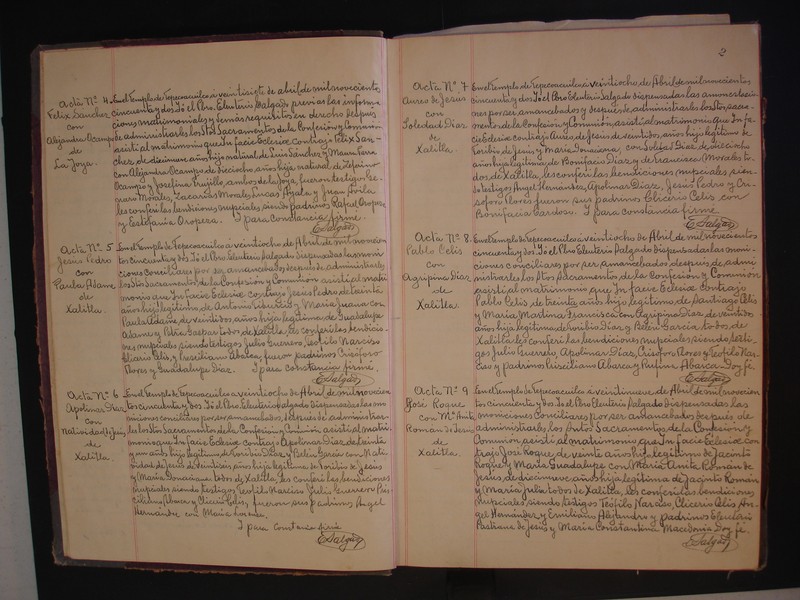 Acta Nº 4
Felix Sanchez
con
Alejandra Ocampo
de
La Joya.
En el Templo de Tepecoacuilco a veintisiete de abril de mil novecientos
cincuenta y dos Yo el Pbro. Eleuterio Salgado previas las informa
ciones matrimoniales y demás requisitos en derecho después
de administrarles los Stos Sacramentos de la Confesión y Comunión
asistí al matrimonio que In facie Eclesiæ contrajo Felix San-
chez, de diecinueve años hijo natural de Luis Sánchez y María
con Alejandra Ocampo de dieciocho, años hija natural de
Ocampo y Josefina Trujillo, ambos de la Joya, fueron testigos
Morales, Zacarías Morales, Lucas Ayala y Juan Avila
les conferí las bendiciones nupciales, siendo padrinos Rafael Oropeza
y Estefanía Oropeza. Y para constancia firmé.
E. Salgado
Acta Nº 5
Jesús Pedro
con
Paula Adame
de
Xalitla.
En el Templo de Tepecoacuilco a veintiocho de Abril de mil novecien
tos cincuenta y dos Yo el Pbro. Eleuterio Salgado dispensadas las moni
ciones conciliares por ser amancebados después de administrarles
los Stos Sacramentos, de la Confesión y Comunión asistí al matri-
monio que In Facie Eclesiæ contrajo Jesús Pedro de treinta
años hijo legítimo de Antonio y María Juana con
Paula Adame, de veintidos, años hija legítima de Guadalupe
Adame y Petra Gaspar todos de Xalitla, les conferí las bendicio
nes nupciales siendo testigos Julio Guerrero, Teófilo Narciso
Clicerio Celis, y Prisciliano Abarca, fueron padrinos Crisóforo
Flores y Guadalupe Díaz. Y para constancia firmé.
E. Salgado
Acta Nº 6
Apolinar Díaz
con
Natividad de Jesús
de
Xalitla.
En el Templo de Tepecoacuilco a veintiocho de Abril de mil novecien
tos cincuenta y dos Yo el Pbro. Eleuterio Salgado dispensadas las mo
niciones conciliares por ser amancebados, y después de administrar-
les los Stos Sacramentos de la Confesión y Comunión asistí al matri-
monio que In Facie Eclesiæ contrajo Apolinar Díaz, de treinta
y un años hijo legítimo de Toribio Díaz y Belén García con Nati
vidad de Jesús de veintiseis, años hija legítima de Toribio de Jesús
y María Donaciana todos de Xalitla, les conferí las bendiciones
nupciales siendo testigos Teofilo Narciso Julio Guerrero Pris
ciliano Abarca y Clicerio Celis, fueron sus padrinos Angel
Hernandez con María
Y para constancia firmé
E. Salgado
2
Acta Nº 7
Aureo de Jesús
con
Soledad Díaz
de
Xalitla.
En el Templo de Tepecoacuilco a veintiocho de Abril de mil novecientos
cincuenta y dos Yo el Pbro Eleuterio Salgado dispensadas las amonestacio
nes por ser amancebados y después de administrarles los Stos Sacra-
mentos de la Confesión y Comunión, asistí al matrimonio que In fa-
cie Eclesiæ contrajo Aureo de Jesús de veintidos, años hijo legítimo de
Toribio de Jesús y María Donaciana, con Soledad Díaz de dieciocho
años hija legítima, de Bonifacio Díaz y de Francisca Morales to-
dos de Xalitla, les conferí las bendiciones nupciales, sien-
do testigos Angel Hernandez, Apolinar Díaz, Jesús Pedro y Cri-
soforo Flores fueron sus padrinos Clicerio Celis con
Bonifacia Cardoso. Y para constancia firmé
E. Salgado
Acta Nº 8
Pablo Celis
con
Agripina Díaz
de
Xalitla.
En el Templo de Tepecoacuilco a veintiocho de Abril de mil novecientos
cincuenta y dos Yo el Pbro. Eleuterio Salgado Dispensadas las moni-
ciones conciliares por ser amancebados después de admi-
nistrarles los Stos. Sacramentos de la Confesión y Comunión
asistí al matrimonio que In facie Eclesiæ Contrajo
Pablo Celis de treinta años hijo legítimo de Santiago Celis
y María Martina Francisca con Agripina Díaz, de veintidos
años hija legítima de Toribio Díaz y Belén García, todos de
Xalitla, les conferí las bendiciones nupciales siendo testi-
gos Julio Guerrero, Apolinar Díaz, Crisóforo Flores y Teófilo Nar-
ciso y padrinos Prisciliano Abarca y Rufina Abarca. Doy fe.
E. Salgado
Acta Nº 9
José Roque
con Mª Anita
Roman de Jesús
de
Xalitla.
En el Templo de Tepecoacuilco a veintinueve de Abril de mil novecien
tos cincuenta y dos Yo el Pbro. Eleuterio Salgado dispensadas las
moniciones Conciliares por ser amancebados después de
administrarles, los Santos Sacramentos, de la Confesión y
Comunión asistí al matrimonio que In facie Eclesiæ con
trajo José Roque, de veinte años hijo legítimo de Jacinto
Roque y María Guadalupe con María Anita Roman de
Jesús, de diecinueve años hija legítima de Jacinto Roman
y María Julia todos de Xalitla, les conferí las bendiciones
nupciales, siendo testigos Teófilo Narciso, Clicerio Celis, An-
gel Hernández y Emiliano Alejandro y padrinos Eleuterio
de Jesús y María Constantina Macedonia Doy fe.
E. Salgado